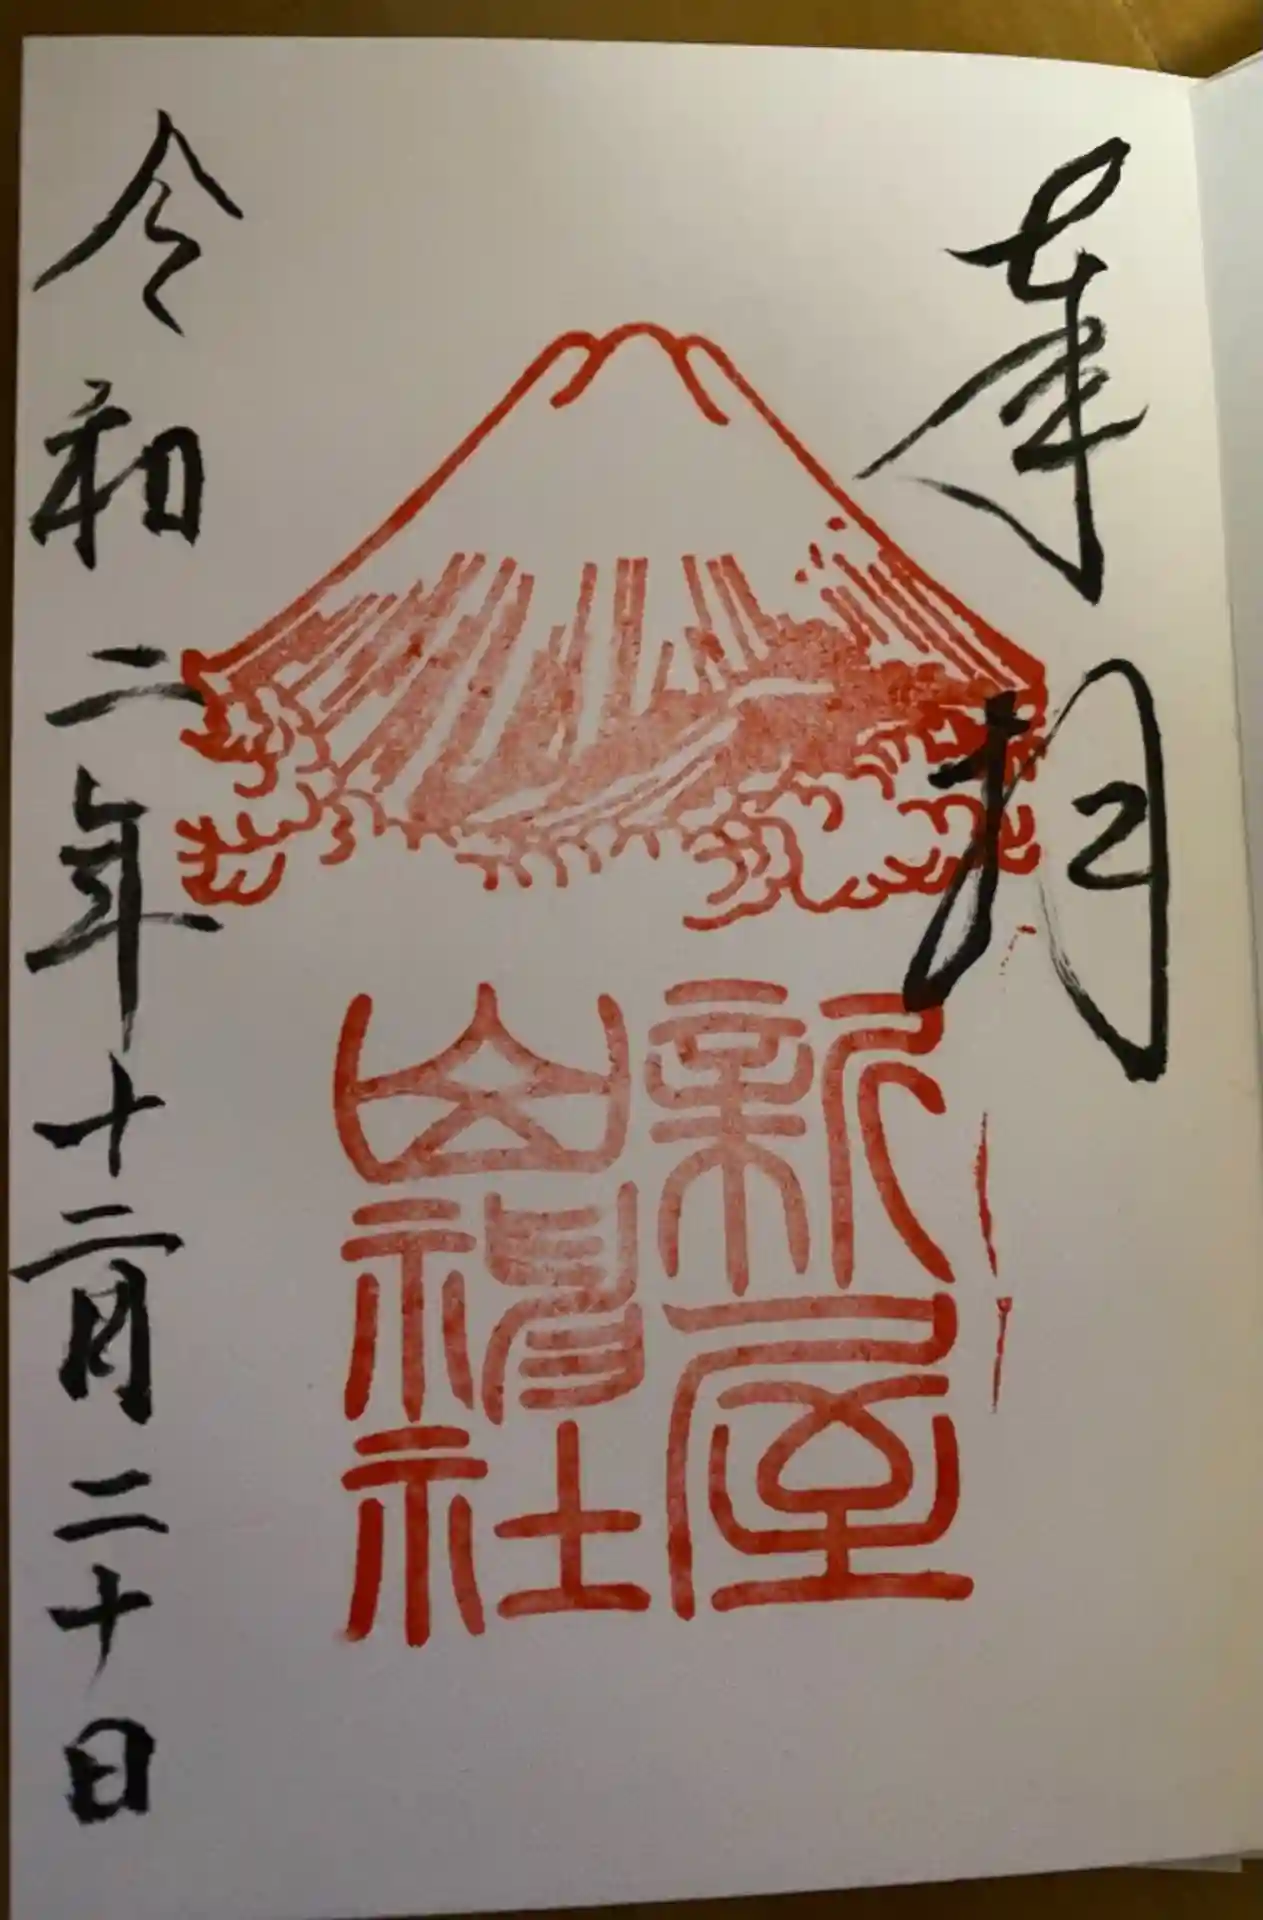 奉拝
新屋
山神社
令和二年十二月二十日